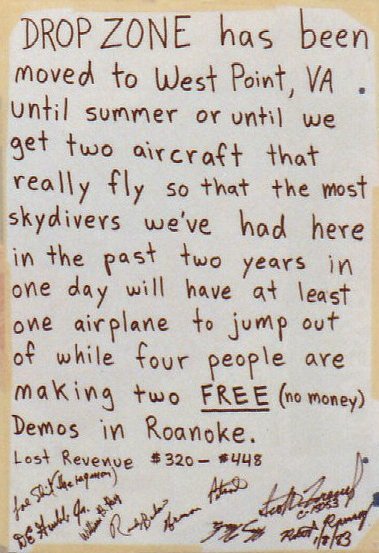 DROP ZONE has been
moved to West Point, VA.
until summer or until we
get two aircraft that
really fly so that the most
skydivers we've had here
in the past two years in
one day will have at least
one airplane to jump out
of while four people are
making two FREE (no money)
Demos in Roanoke.
Lost Revenue $320 - $448